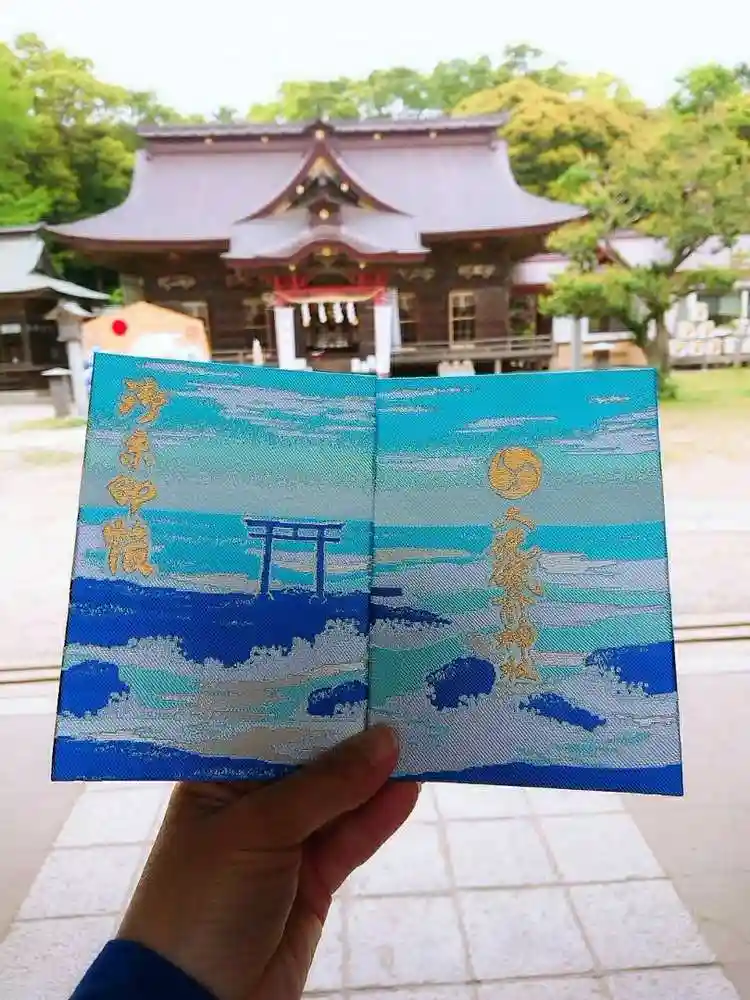 御朱印帳
大洗磯前神社